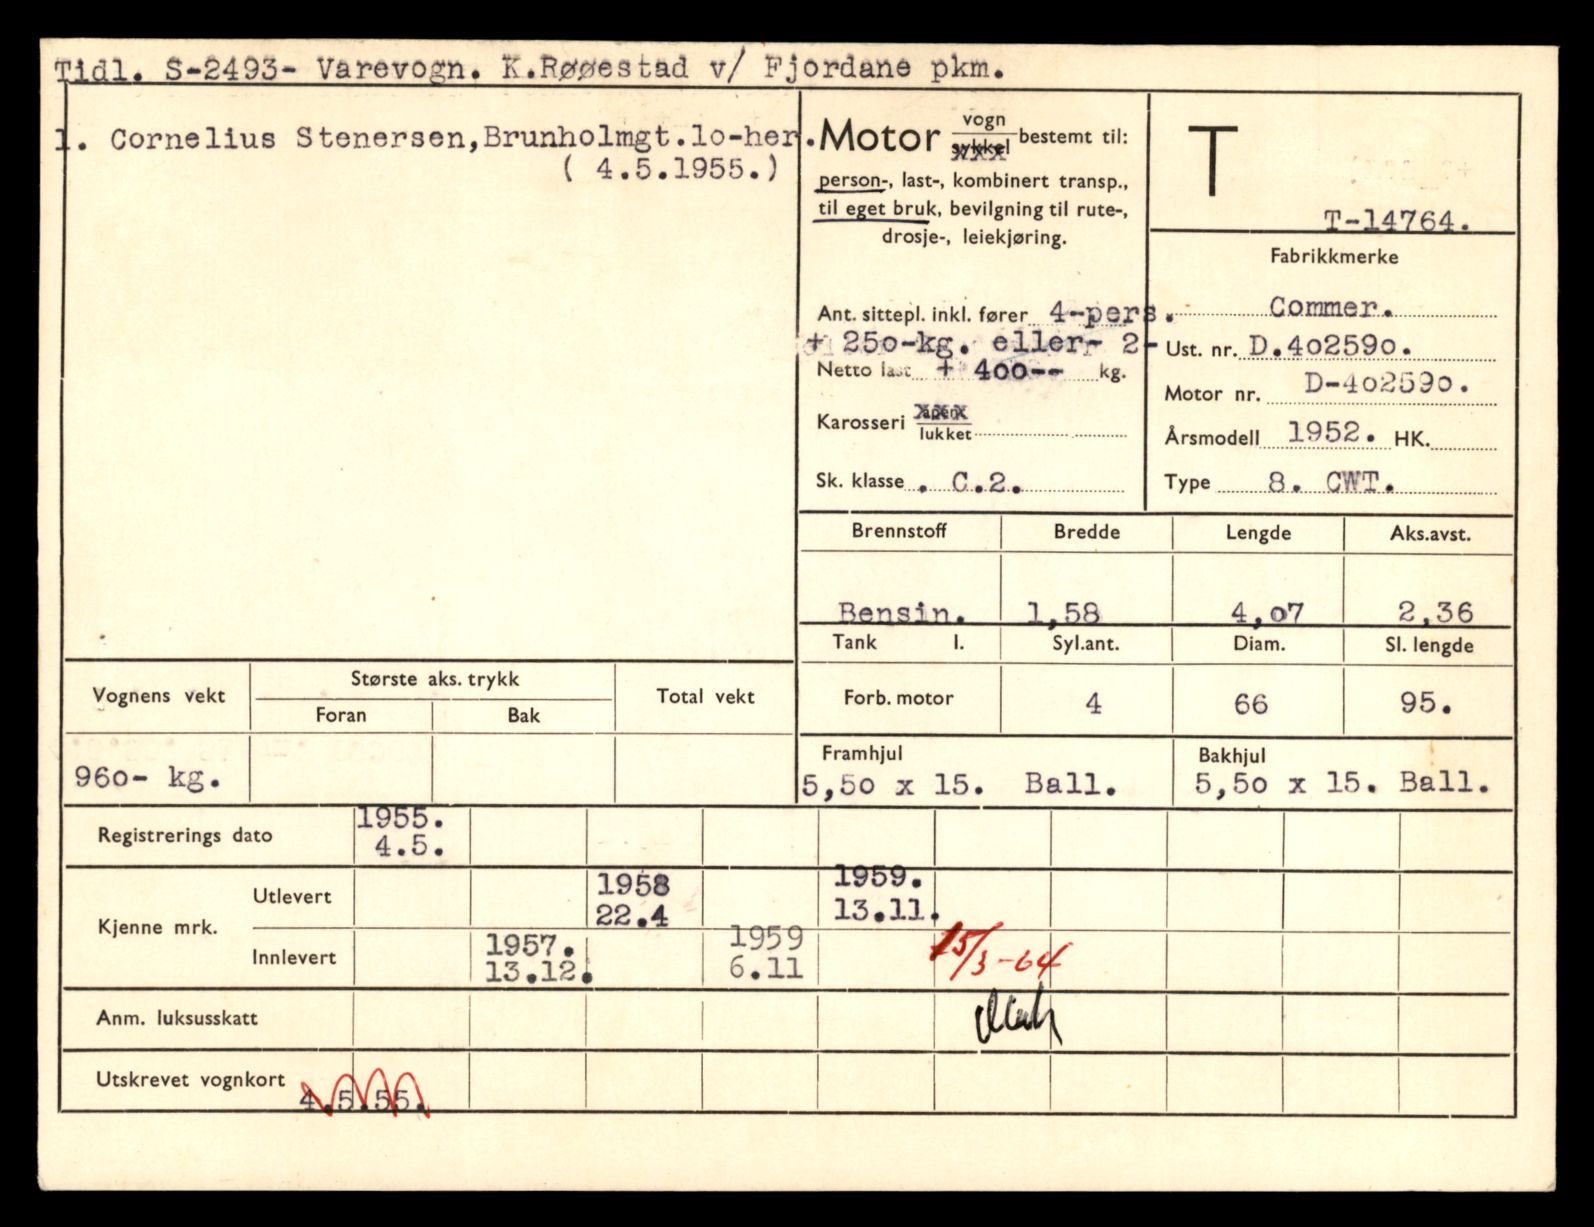 Tidl. S-2493- Varevogn. K.Røøestad v/ Fjordane pkm.
1. Cornelius Stenersen,Brunholmgt.lo-her.
( 4.5.1955.)
Motor vogn
sykkel bestemt til:
person-, last-, kombinert transp.,
til eget bruk, bevilgning til rute-,
drosje-, leiekjøring.
Ant. sittepl. inkl. fører 4-pers.
+ 25o-kg. eller- 2-
Netto last + 4oo-- kg.
Karosseri åpen
lukket
Sk. klasse . C.2.
T
T-14764.
Fabrikkmerke
Commer.
Ust. nr. D.4o259o.
Motor nr. D-4o259o.
Årsmodell 1952. HK.
Type 8. CWT.
Brennstoff Bredde Lengde Aks.avst.
Bensin. 1,58 4,o7 2,36
Tank l. Syl.ant. Diam. Sl. lengde
Forb. motor 4 66 95.
Framhjul Bakhjul
5,5o x 15. Ball. 5,5o x 15. Ball.
Vognens vekt Største aks. trykk Total vekt
Foran Bak
96o- kg.
Registrerings dato 1955.
4.5.
Kjenne mrk.
Utlevert 1958 1959.
22.4 13.11.
Innlevert 1957. 1959 15/3-64
13.12. 6.11
Anm. luksusskatt
Utskrevet vognkort
4.5.55.